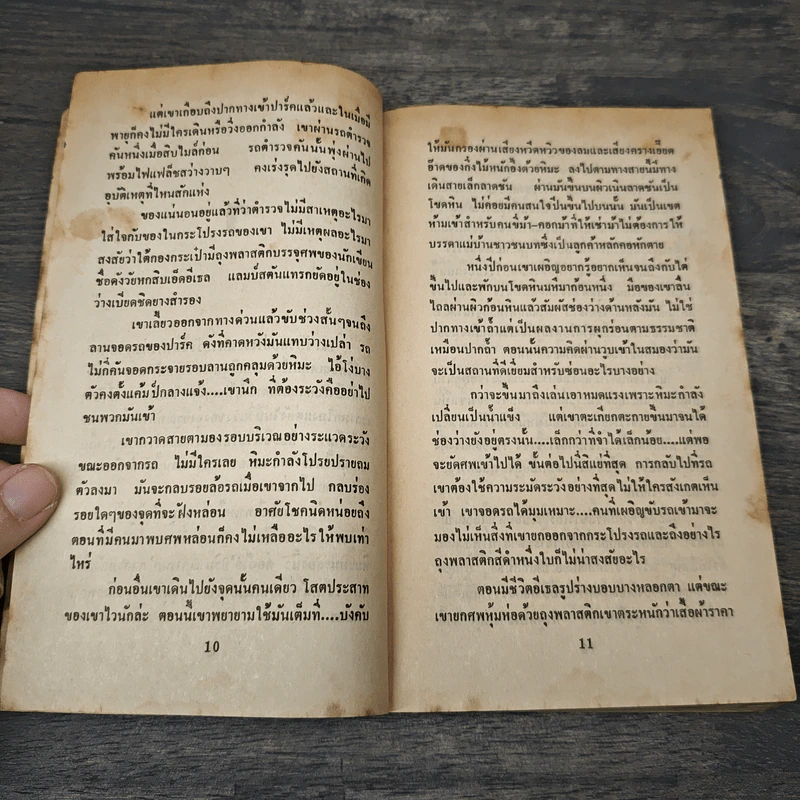 แต่เขาเกือบถึงปากทางเข้าปาร์คแล้วและในเมื่อมี
พายุก็คงไม่มีใครเดินหรือวิ่งออกกำลัง เขาผ่านรถตำรวจ
คันหนึ่งเมื่อสิบไมล์ก่อน รถตำรวจคันนั้นพุ่งผ่านไป
พร้อมไฟแฟล็ชสว่างวาบๆ คงเร่งรุดไปยังสถานที่เกิด
อุบัติเหตุที่ไหนสักแห่ง
ของแน่นอนอยู่แล้วที่ว่าตำรวจไม่มีสาเหตุอะไรมา
ใส่ใจกับของในกระโปรงรถของเขา ไม่มีเหตุผลอะไรมา
สงสัยว่าใต้กองกระเป๋ามีถุงพลาสติกบรรจุศพของนักเขียน
ชื่อดังวัยหกสิบเอ็ดอีเธล แลมบ์สตันแทรกยัดอยู่ในช่อง
ว่างเบียดชิดยางสำรอง
เขาเลี้ยวออกจากทางด่วนแล้วขับช่วงสั้นๆจนถึง
ลานจอดรถของปาร์ค ดังที่คาดหวังมันแทบว่างเปล่า รถ
ไม่กี่คันจอดกระจายรอบลานถูกคลุมด้วยหิมะ ไอ้โง่บาง
ตัวคงตั้งแค้มป์กลางแจ้ง....เขานึก ที่ต้องระวังคืออย่าไป
ชนพวกมันเข้า
เขากวาดสายตามองรอบบริเวณอย่างระแวดระวัง
ขณะออกจากรถ ไม่มีใครเลย หิมะกำลังโปรยปรายถม
ตัวลงมา มันจะกลบรอยล้อรถเมื่อเขาจากไป กลบร่อง
รอยใดๆของจุดที่จะฝังหล่อน อาศัยโชคนิดหน่อยถึง
ตอนที่มีคนมาพบศพหล่อนก็คงไม่เหลืออะไรให้พบเท่า
ไหร่
ก่อนอื่นเขาเดินไปยังจุดนั้นคนเดียว โสตประสาท
ของเขาไวนักล่ะ ตอนนี้เขาพยายามใช้มันเต็มที่....บังคับ
10
ให้มันกรองผ่านเสียงหวีดหวิวของลมและเสียงครางเอี๊ยด
อ๊าดของกิ่งไม้หนักอึ้งด้วยหิมะ ลงไปตามทางสายนี้มีทาง
เดินสายเล็กลาดชัน ผ่านมันขึ้นบนผิวเนินลาดชันเป็น
โขดหิน ไม่ค่อยมีคนสนใจปีนขึ้นไปบนนั้น มันเป็นเขต
ห้ามเข้าสำหรับคนขี่ม้า-คอกม้าที่ให้เช่าม้าไม่ต้องการให้
บรรดาแม่บ้านชาวชนบทซึ่งเป็นลูกค้าหลักคอหักตาย
หนึ่งปีก่อนเขาเผอิญอยากรู้อยากเห็นจนถึงกับไต่
ขึ้นไปและพักบนโขดหินมหึมาก้อนหนึ่ง มือของเขาลื่น
ไถลผ่านผิวก้อนหินแล้วสัมผัสช่องว่างด้านหลังมัน ไม่ใช่
ปากทางเข้าถ้ำแต่เป็นผลงานการผุกร่อนตามธรรมชาติ
เหมือนปากถ้ำ ตอนนั้นความคิดผ่านวูบเข้าในสมองว่ามัน
จะเป็นสถานที่ดีเยี่ยมสำหรับซ่อนอะไรบางอย่าง
กว่าจะขึ้นมาถึงเล่นเอาหมดแรงเพราะหิมะกำลัง
เปลี่ยนเป็นน้ำแข็ง แต่เขาตะเกียกตะกายขึ้นมาจนได้
ช่องว่างยังอยู่ตรงนั้น....เล็กกว่าที่จำได้เล็กน้อย....แต่พอ
จะยัดศพเข้าไปได้ ขั้นต่อไปนี่สิแย่ที่สุด การกลับไปที่รถ
เขาต้องใช้ความระมัดระวังอย่างที่สุดไม่ให้ใครสังเกตเห็น
เข้า เขาจอดรถได้มุมเหมาะ....คนที่เผอิญขับรถเข้ามาจะ
มองไม่เห็นสิ่งที่เขายกออกจากกระโปรงรถและถึงอย่างไร
ถุงพลาสติกสีดำหนึ่งใบก็ไม่น่าสงสัยอะไร
ตอนมีชีวิตอีเธลรูปร่างบอบบางหลอกตา แต่ขณะ
เขายกศพหุ้มห่อด้วยถุงพลาสติกเขาตระหนักว่าเสื้อผ้าราคา
11